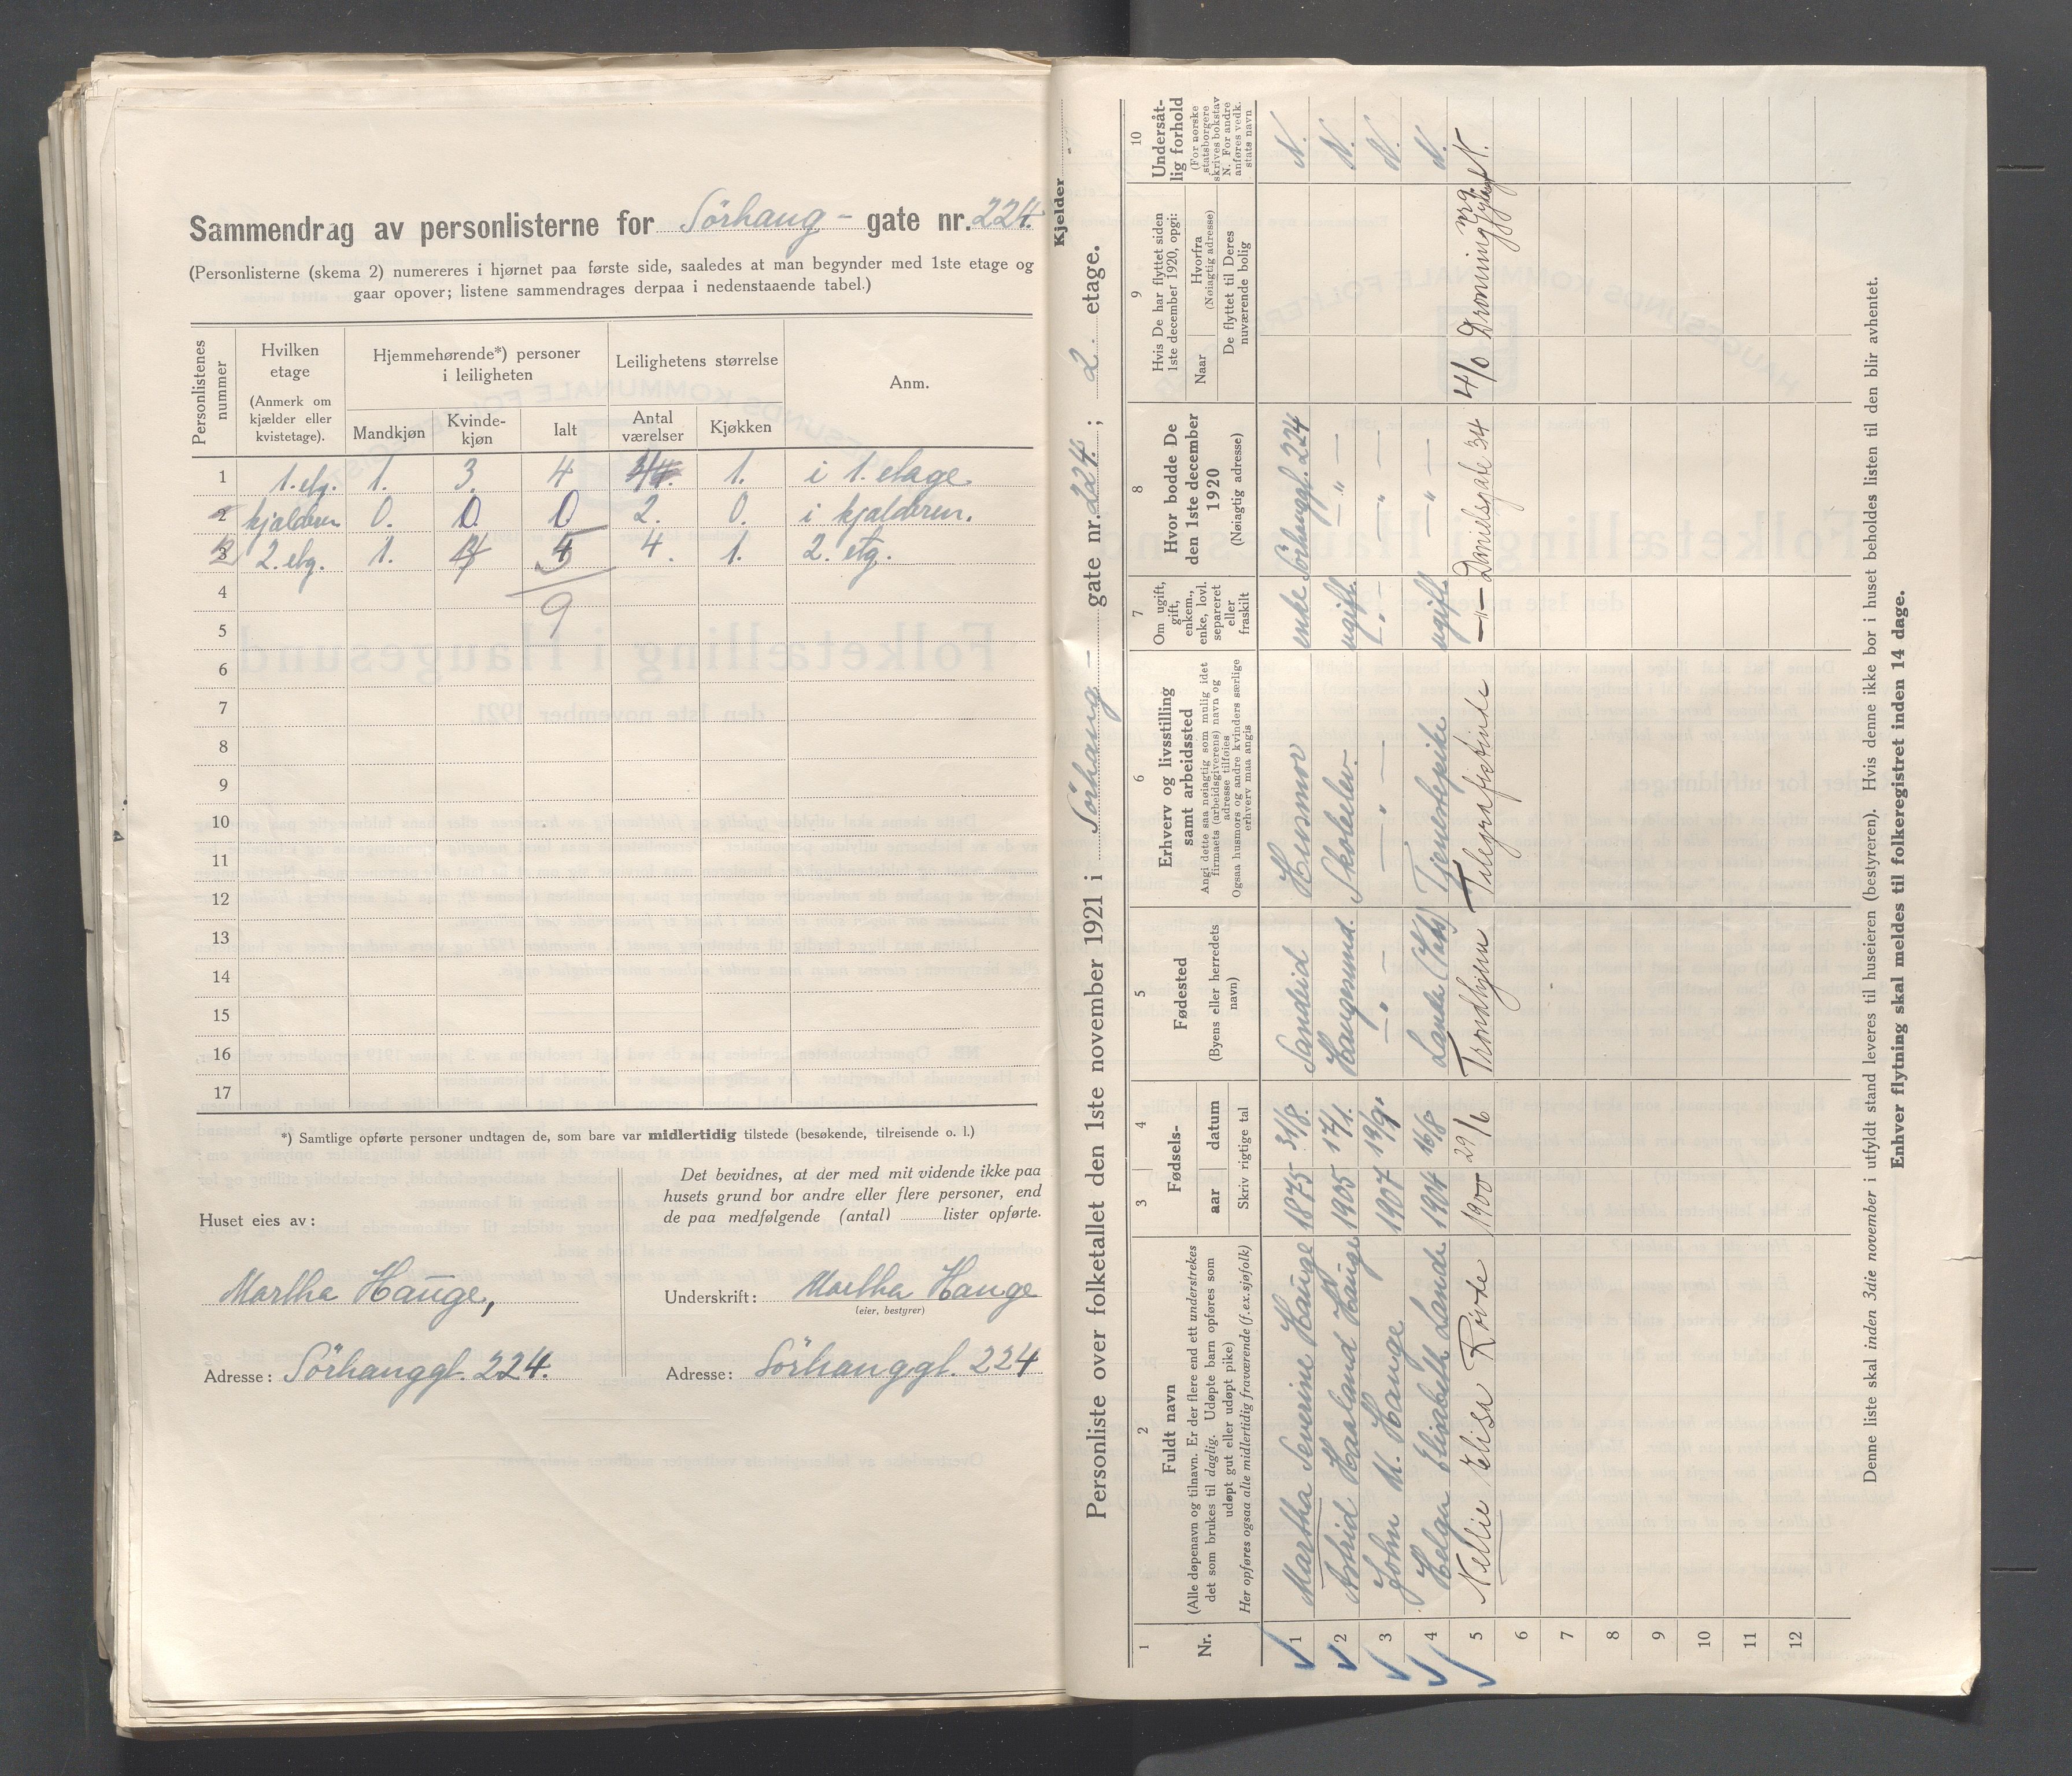 Sammendrag av personlisterne for Sörhaug - gate nr. 224.
(Personlisterne (skema 2) numereres i hjørnet paa første side, saaledes at man begynder med 1ste etage og
gaar opover; listene sammendrages derpaa i nedenstaaende tabel.)
Personlistenes nummer
Hvilken etage
(Anmerk om kjælder eller kvistetage).
Hjemmehørende*) personer i leiligheten
Mandkjøn Kvindekjøn Ialt
Leilighetens størrelse
Antal værelser Kjøkken
Anm.
1 1. etg. 1. 3. 4 1. i 1. etage
2 kjælderen 0. 0 0 2. 0. i kjælderen.
3 2. etg. 1. 4 5 4. 1. 2. etg.
4 9
5
6
7
8
9
10
11
12
13
14
15
16
17
*) Samtlige opførte personer undtagen de, som bare var midlertidig tilstede (besøkende, tilreisende o. l.)
Huset eies av:
Martha Hauge,
Adresse: Sörhauggt. 224.
Det bevidnes, at der med mit vidende ikke paa
husets grund bor andre eller flere personer, end
de paa medfølgende (antal) lister opførte.
Underskrift: Martha Hauge
(eier, bestyrer)
Adresse: Sörhauggt. 224
Kjelder
Personliste over folketallet den 1ste november 1921 i Sörhaug - gate nr. 224.; 2 etage.
1 2 3 4 5 6 7 8 9 10
Nr.
Fuldt navn
(Alle døpenavn og tilnavn. Er der flere end ett understrekes
det som brukes til daglig. Udøpte barn opføres som
udøpt gut eller udøpt pike)
Her opføres ogsaa alle midlertidig fraværende (f.ex. sjøfolk)
Fødsels-
aar datum
Skriv rigtige tal
Fødested
(Byens eller herredets navn)
Erhverv og livsstilling
samt arbeidssted
Angi dette saa nøiagtig som mulig idet
firmaets (arbeidsgiverens) navn og
adresse tilføies
Ogsaa husmors og andre kvinders særlige
erhverv maa angis
Om ugift, gift, enkem., enke, lovl. separeret eller fraskilt
Hvor bodde De
den 1ste december
1920
(Nøiagtig adresse)
Hvis De har flyttet siden
1ste december 1920, opgi:
Naar
Hvorfra
(Nøiagtig adresse)
De flyttet til Deres
nuværende bolig
Undersåtlig forhold
(For norske
statsborgere
skrives bokstav
N. For andre
anføres vedk.
stats navn
1 Martha Severine Hauge 1875 31/8. Sandeid Husmor enke Sörhauggt. 224 N.
2 Astrid Haaland Hauge 1905 17/1. Haugesund. Skoleelev. ugift. -"- N.
3 John M. Hauge 1907 13/9. -"- -"- -"- -"- N.
4 Helga Elisabeth Lande 1904 16/8 Tjenestepike ugift. -"- N.
5 Nellie Elisa Rovde 1900 29/6 Trondhjem Telegrafistinde -"- Danielsgate 34 4/6 N.
6
7
8
9
10
11
12
Denne liste skal inden 3die november i utfyldt stand leveres til huseieren (bestyreren). Hvis denne ikke bor i huset beholdes listen til den blir avhentet.
Enhver flytning skal meldes til folkeregistret inden 14 dage.